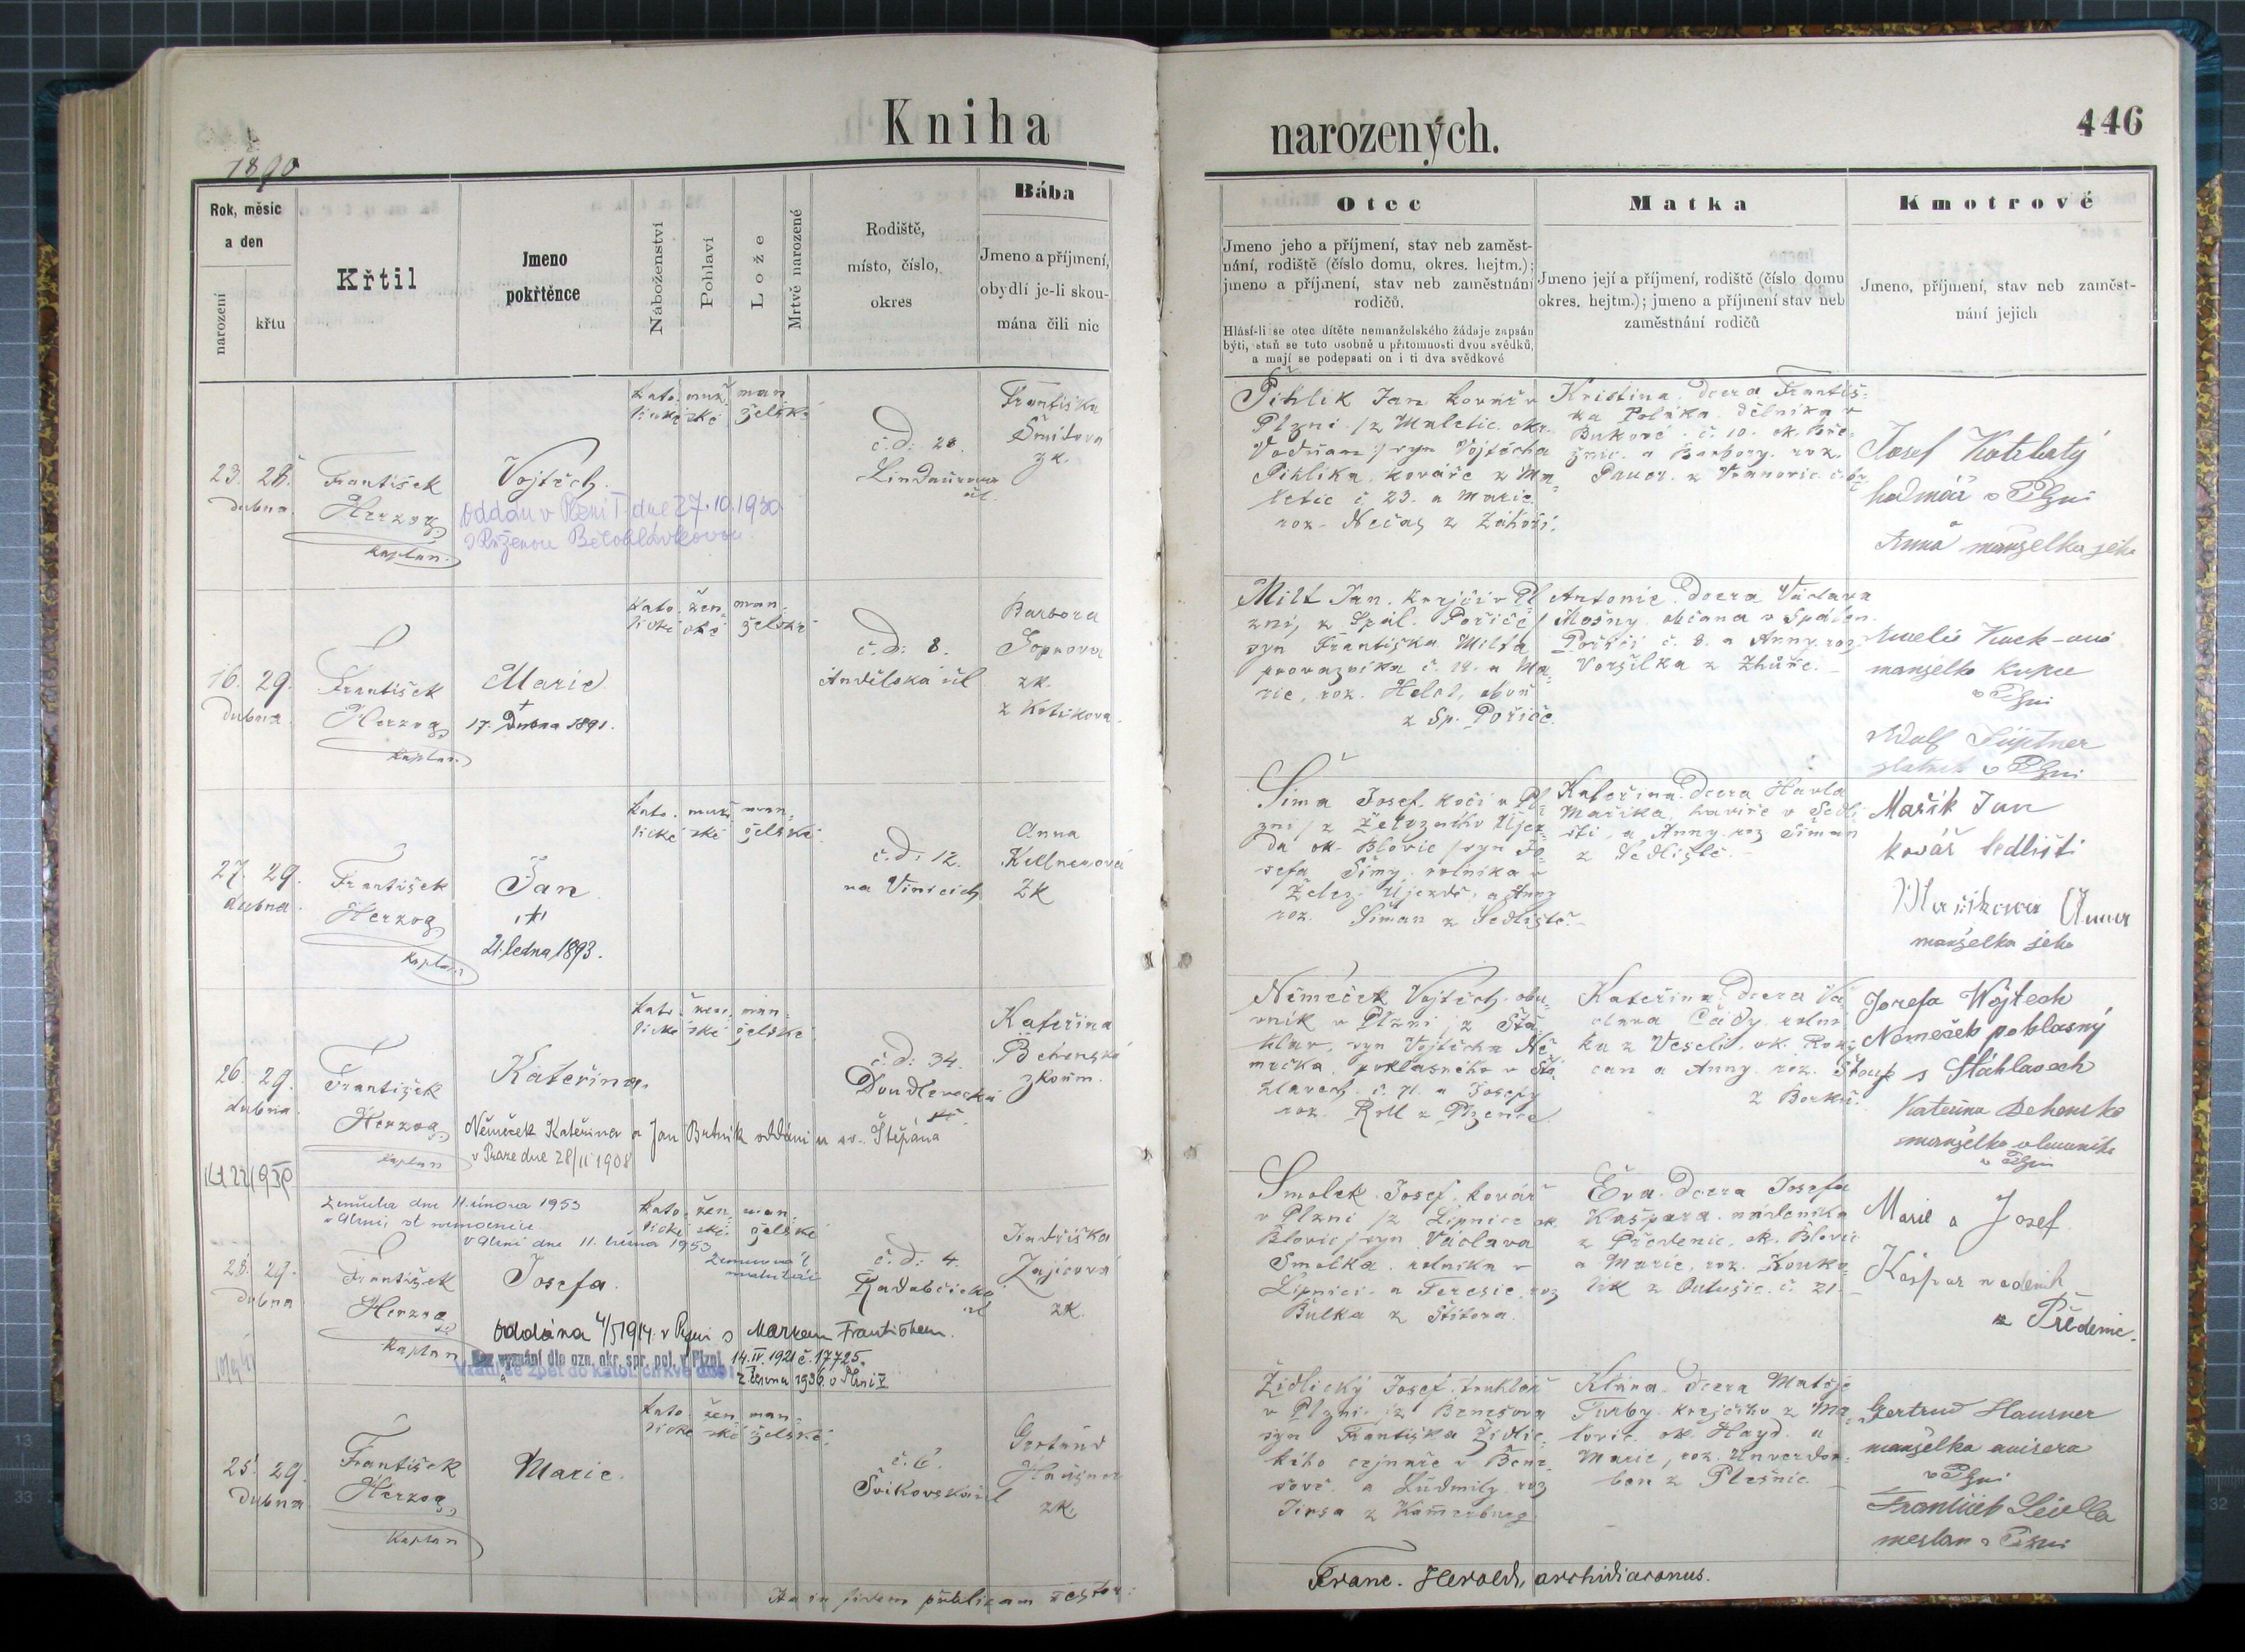 Kniha
narozených.
446
1890
Rok, měsíc
a den
narození
křtu
Křtil
Jmeno
pokřtěnce
Náboženství
Pohlaví
Lože
Mrtvě narozené
Rodiště,
místo, číslo,
okres
Bába
Jmeno a příjmení,
obydlí je-li skou-
mána čili nic
Otec
Jmeno jeho a příjmení, stav neb zaměst-
nání, rodiště (číslo domu, okres. hejtm.);
jmeno a příjmení, stav neb zaměstnání
rodičů.
Hlásí-li se otec dítěte nemanželského žádaje zapsán
býti, staň se toto osobně u přítomnosti dvou svědků,
a mají se podepsati on i ti dva svědkové
Matka
Jmeno její a příjmení, rodiště (číslo domu
okres. hejtm.); jmeno a příjmení stav neb
zaměstnání rodičů
Kmotrové
Jmeno, příjmení, stav neb zaměst-
nání jejich
23. 28.
dubna
František
Herzog
kaplan
Vojtěch.
oddán v Plzni I dne 27.10.1930
s Růženou Bělohlávkovou
kato- muž- man-
lické ské želské
č.d: 28
Františka
Šmídová
zk.
Pihlík Jan kovář v
Plzni /z Maletic okr.
Vodňan/ syn Vojtěcha
Pihlíka kováře z Ma-
letic č 23. a Marie
roz. Nečas z Záhoří.
Kristina dcera Františ-
ka Poláka dělníka v
Bukové č. 10. ok. Pře-
štic a Barbory roz.
Josef
v Plzni
Anna manželka jeho
16. 29.
dubna
František
Herzog
kaplan
Marie
†
17. Dubna 1891.
kato- žen- man-
lické ské želské
č.d: 8.
Andělská ul
Barbora
zk.
z Kotíkova
Milt Jan, krejčí v Pl
zni, z Spál. Poříčí /
syn Františka Milta
provazníka č. 19. a Ma-
rie, roz.
z Sp. Poříčí.
Antonie dcera Václava
Mošny občana v Spálen.
Poříčí č. 8. a Anny roz
Voršilka z Zhůře.
manželka kupce
v Plzni
v Plzni
27. 29.
dubna
František
Herzog
kaplan
Jan
†
21. ledna 1893.
kato- muž- man-
lické ské želské
č.d: 12.
na Vinicích
Anna
Kellnerová
zk
Šíma Josef kočí v Pl-
zni /z Železného Újez-
da ok. Blovic /syn Jo-
sefa Šímy rolníka v
Želez. Újezdě, a Anny
roz. Šiman z Sedliště.
Kateřina dcera Havla
Maříka, havíře v Sedli
šti, a Anny roz Šiman
z Sedliště.
Mařík Jan
kovář Sedlišti
Maříkova Anna
manželka jeho
26. 29.
dubna
František
Herzog
kaplan
Kateřina.
Němeček Kateřina a Jan Butník oddáni u sv. Štěpána
v Praze dne 28/11 1908
kato- žen- man-
lické ské želské
č.d: 34.
Doudlevecká
Kateřina
zkoum.
Němeček Vojtěch obu-
vník v Plzni /z Šťá-
hlav, syn Vojtěcha Ně-
mečka, pohlasného v Šťá-
hlavech č. 71. a Josefy
roz. Roll z Plzence
Kateřina dcera Vá
clava Čády rolní
ka z Veselí, ok. Roky
can a Anny roz. Štoup
z Borku.
Josefa Wojtech
Nemeček pohlasný
s Stáhlavech
Kateřina
manželka
v Plzni
28. 29.
dubna
František
Herzog
kaplan
Zemřela dne 11. února 1953
v Plzni, st nemocnice
V Plzni dne 11. března 1953
Josefa.
oddána 4/5 1914 v Plzni s Markem Františkem.
Bez vyznání dle ozn. okr. spr. pol. v Plzni 14.IV.1921 č. 17725.
Vrátila se zpět do katol. církve dne 2. června 1936 v Plzni V
kato- žen- man-
lické ské želské
č.d: 4.
Radobčická
ul
Jindřiška
Zajícová
zk.
Smolek Josef kovář
v Plzni /z Lipnice ok.
Blovic /syn Václava
Smolka, rolníka v
Lipnici a Teresie roz
Bulka z Štítova.
Eva dcera Josefa
Kašpara nádeníka
z Předenic, ok. Blovic
a Marie, roz. Kouko-
lík z Outušic č. 21.
Marie a Josef
Kašpar nadenik
z Předenic.
25. 29.
dubna
František
Herzog
Kaplan
Marie.
kato- žen- man-
lické ské želské
č. 6.
Gertrud
Hausner
zk.
Židlický Josef truhlář
v Plzni /z Benešova
syn Františka Židlic-
kého v Bene-
šově a Ludmily roz
Jirsa z Kamerburg
Klára dcera Matěje
Turby krejčího z
ok. Hayd. a
Marie, roz. Unverdor-
ben z Plešnic.
Gertrud Hausner
manželka
v Plzni
František
v Plzni
Franc. Herold, archidiaconus.